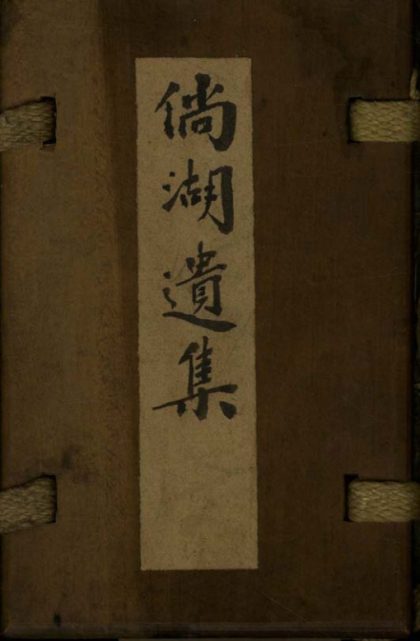 倘湖遺集